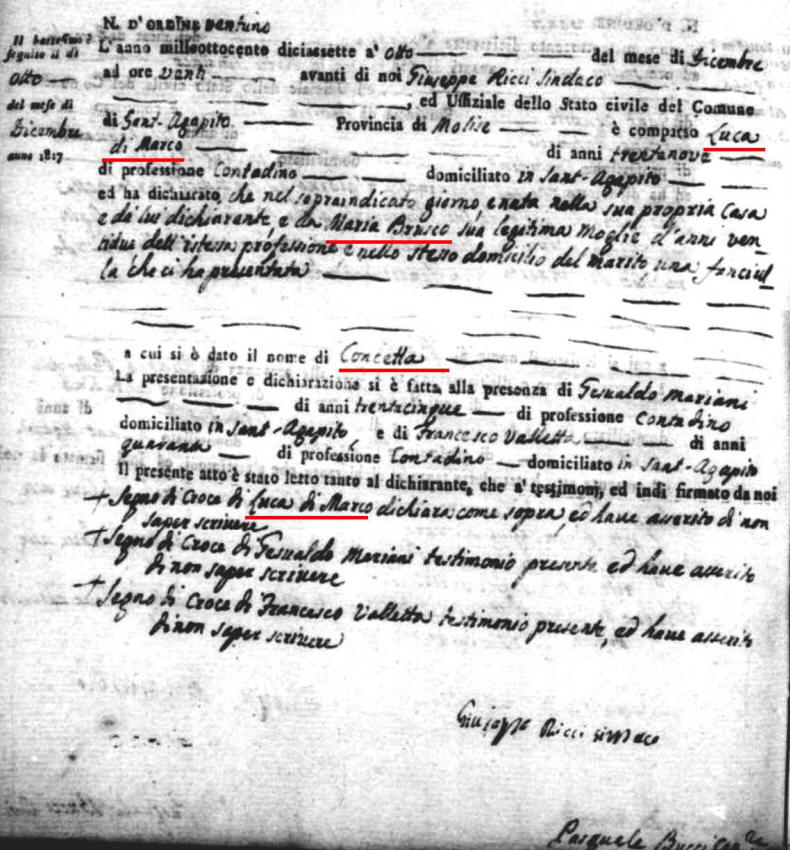 N. D'ORDINE ventuno
Il battesimo è
seguito il dì
otto
del mese di
Dicembre
anno 1817
L'anno milleottocento diciassette a' otto del mese di Dicembre
ad ore venti avanti di noi Giuseppe Ricci Sindaco
, ed Uffiziale dello Stato civile del Comune
di Sant-Agapito Provincia di Molise è comparso Luca
di Marco di anni trentanove
di professione Contadino domiciliato in Sant-Agapito
ed ha dichiarato, che nel sopraindicato giorno è nata nella sua propria Casa
e di lui dichiarante, e da Maria Brusco sua legitima Moglie d'anni ven-
tidue dell'istessa professione e nello stesso domicilio del marito una fanciul
la che ci ha presentata
a cui si è dato il nome di Concetta
La presentazione e dichiarazione si è fatta alla presenza di Gesualdo Mariani
di anni trentacinque di professione Contadino
domiciliato in Sant-Agapito e di Francesco Valletta di anni
quaranta di professione Contadino domiciliato in Sant-Agapito
Il presente atto è stato letto tanto al dichiarante, che a' testimonj, ed indi firmato da noi
+ Segno di Croce di Luca di Marco dichiara come sopra, ed have asserito di non
saper scrivere
+ Segno di Croce di Gesualdo Mariani testimonio presente ed have asserito
di non saper scrivere
+ Segno di Croce di Francesco Valletta testimonio presente, ed have asserito
di non saper scrivere
Giuseppe Ricci sindaco
Pasquale Bucci